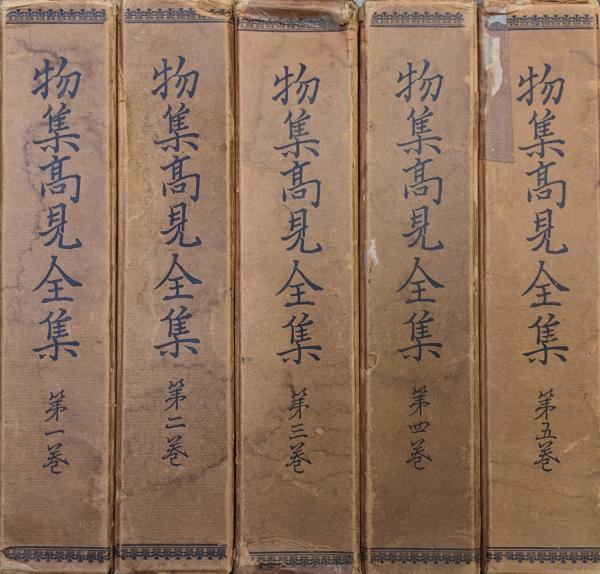 物集髙見全集 第一巻
物集髙見全集 第二巻
物集髙見全集 第三巻
物集髙見全集 第四巻
物集髙見全集 第五巻